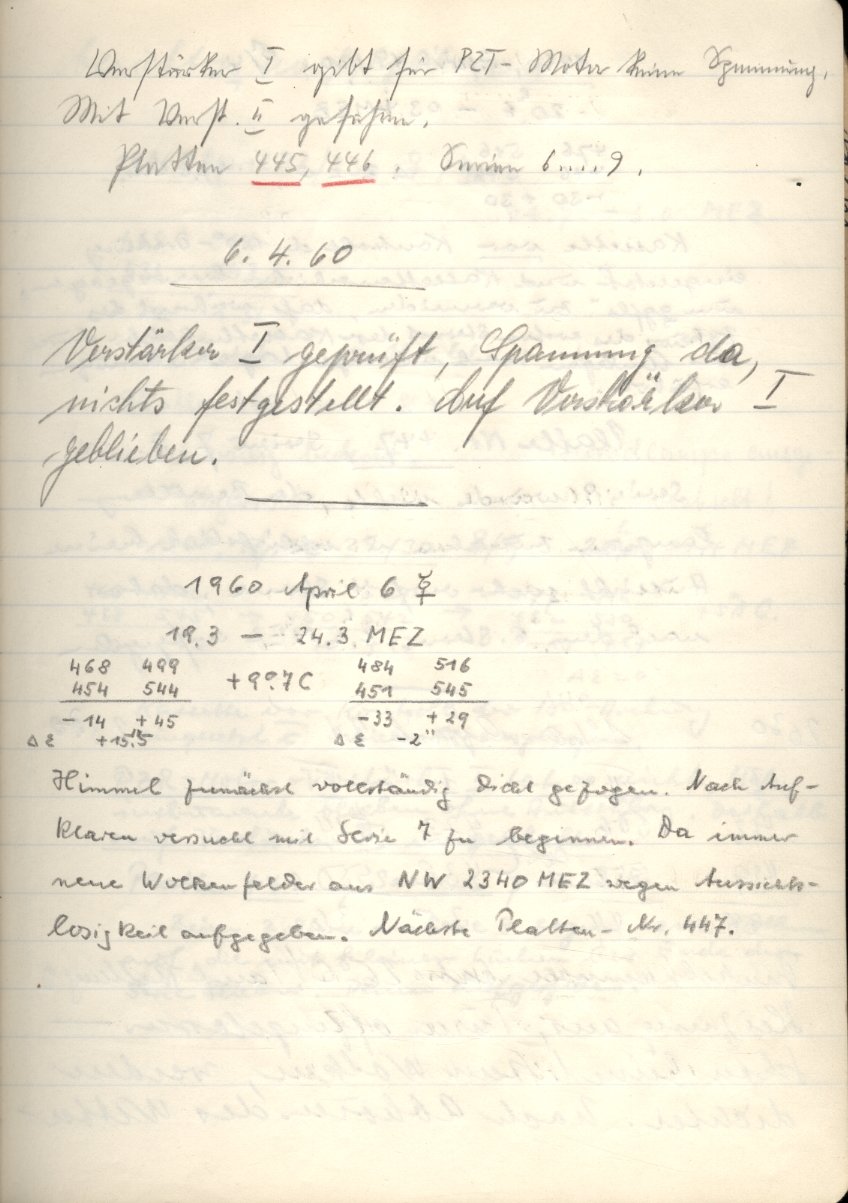 Verstärker I gibt für PZT-Motor keine Spannung.
Mit Verst. II gefahren.
Platten 445, 446. Serien 6...9.
6. 4. 60
Verstärker I geprüft, Spannung da,
nichts festgestellt. Auf Verstärker I
geblieben.
1960 April 6 ☿
19.3 — 24.3 MEZ
468 499 +9°.7 C 484 516
454 544 451 545
-14 +45 -33 +29
Δε +15".5 Δε -2"
Himmel zunächst vollständig dicht gezogen. Nach Auf-
klaren versucht mit Serie 7 zu beginnen. Da immer
neue Wolkenfelder aus NW 2340 MEZ wegen Aussichts-
losigkeit aufgegeben. Nächste Platten-Nr. 447.